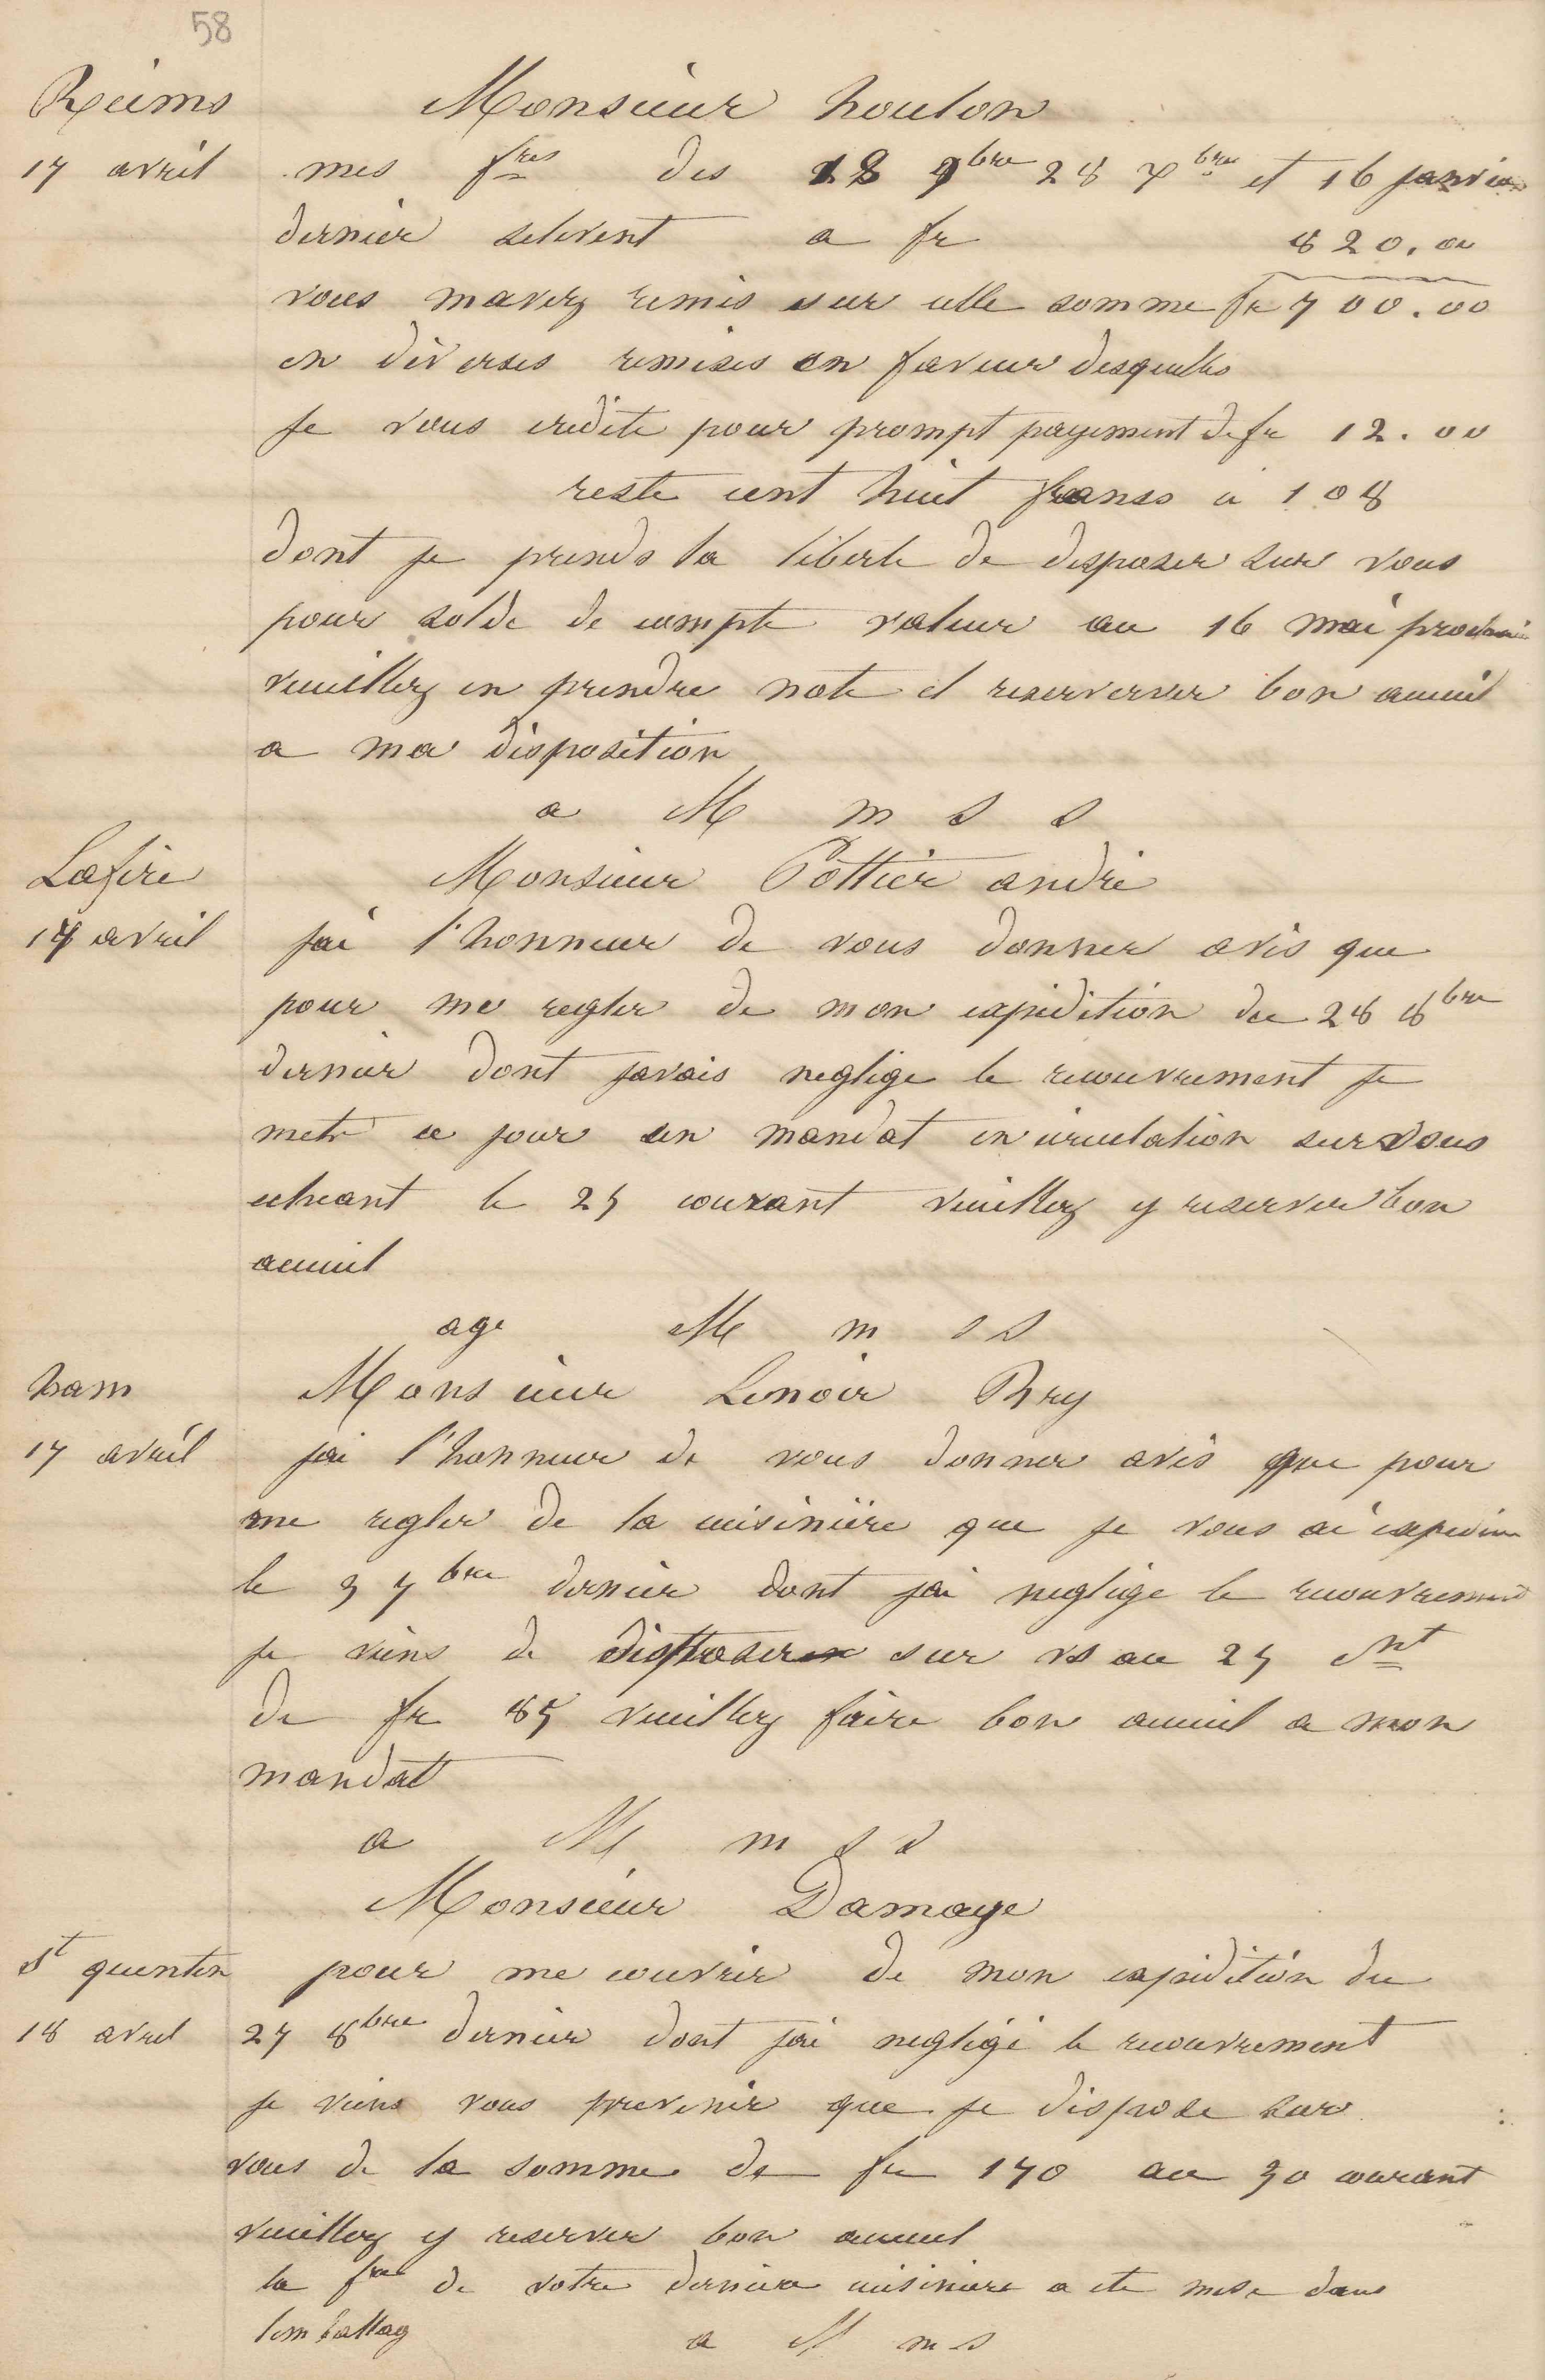 58
Reims Monsieur houlon
17 avril mes fres des 18 9bre 28 7bre et 16 janvier
dernier selevent a fr 820.00
vous mavez remis sur cette somme fr 700.00
en diverses remises en faveur desquelles
je vous credite pour prompt payement de fr 12.00
reste cent huit francs a 108
dont je prends la liberte de disposer sur vous
pour solde de compte valeur au 16 mai prochain
veuillez en prendre note et reserverver bon acceuil
a ma disposition
a M m s s
Lafere Monsieur Pottier andré
17 avril jai l'honneur de vous donner avis que
pour me regler de mon expedition du 28 8bre
dernier dont javais neglige le recouvrement je
mets ce jour un mandat en circulation sur vous
echeant le 25 courant veuillez y reserver bon
acceuil
age M m s s
ham Monsieur Lenoir Rry
17 avril jai l'honneur de vous donner avis que pour
me regler de la cuisinière que je vous ai expedier
le 3 7bre dernier dont jai neglige le recouvrement
je viens de disposer sur vs au 25 Ct
de fr 85 veuillez faire bon acceuil a mon
mandat
a M m s s
Monsieur Damaye
St quentin pour me couvrir de mon expedition du
18 avril 27 8bre dernier dont jai negligé le recouvrement
je viens vous prevenir que je dispose sur
vous de la somme de fr 170 au 30 courant
veuillez y reserver bon acceuil
la fre de votre derniere cuisiniere a ete mise dans
lemballag a M m s